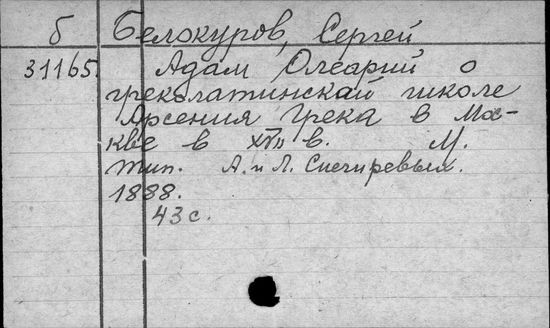 Б Белокуров, Сергей
31165. Адам Олеарий о
греколатинской школе
Арсения Грека в Мос-
кве в XVII в. М.
тип. А. и Л. Снегиревых.
1888.
43 с.